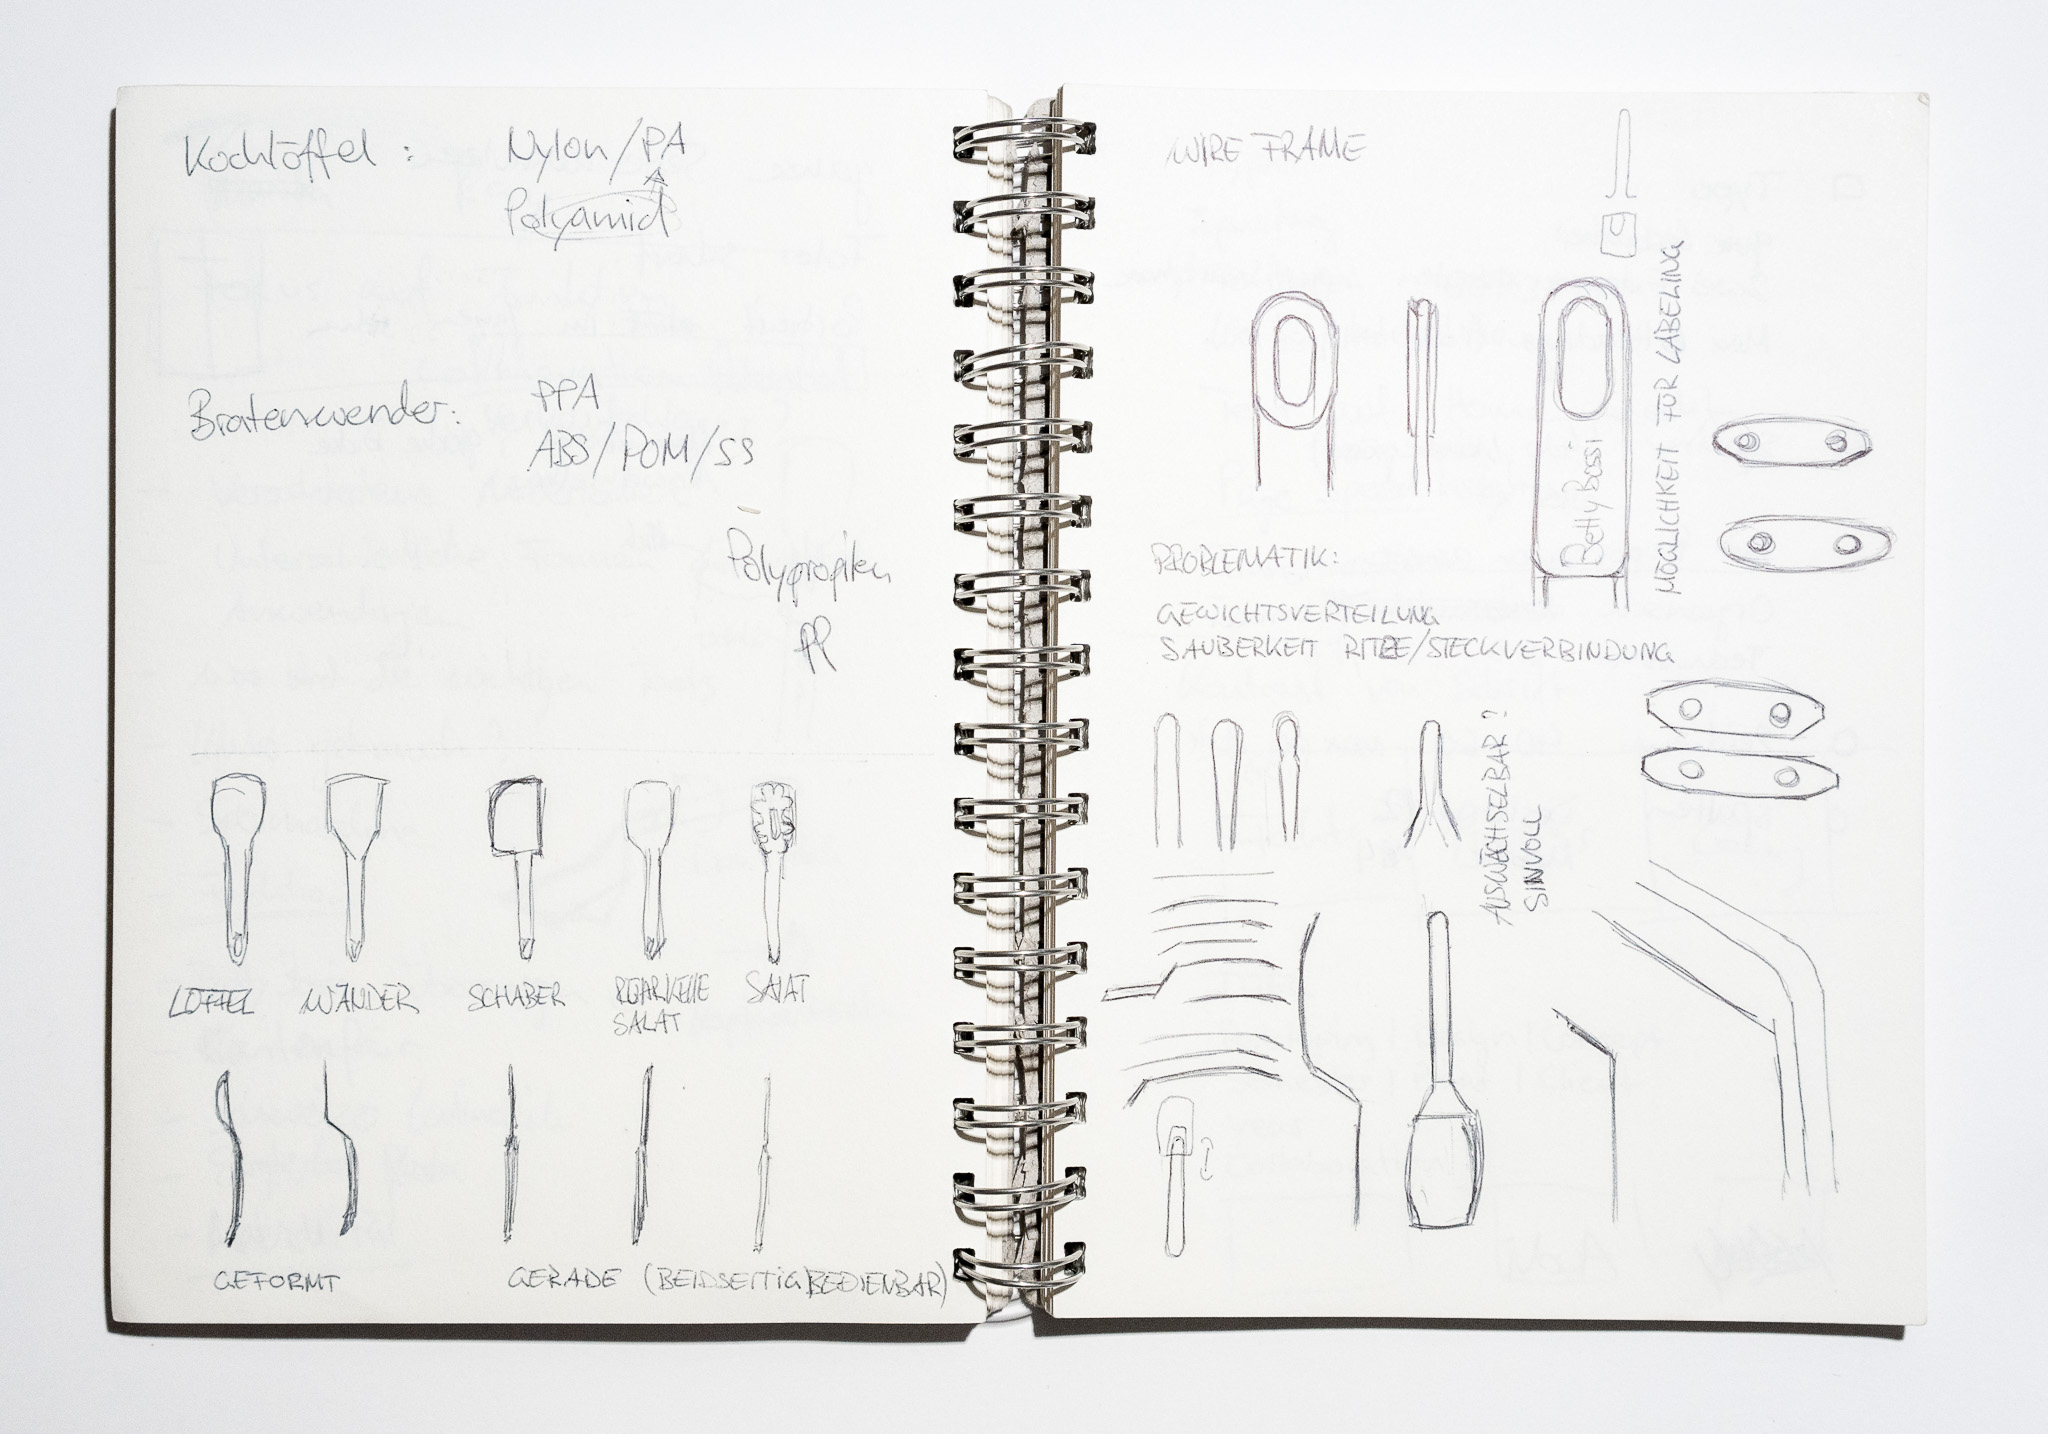 Kochlöffel : Nylon/PA
Polyamid
Bratenwender: PPA
ABS/POM/SS
Polypropilen
PP
LÖFFEL WÄNDER SCHABER SALAT
SALAT
GEFORMT GERADE (BEIDSEITIG BEDIENBAR)
WIRE FRAME
BettyBossi
MÖGLICHKEIT FÜR LABELING
PROBLEMATIK:
GEWICHTSVERTEILUNG
SAUBERKEIT RITZE/STECKVERBINDUNG
AUSWÄCHSELBAR?
SINVOLL